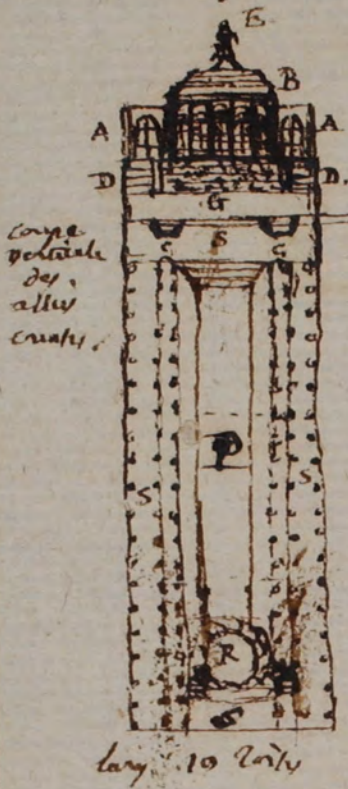 E
B
A A
D D.
G
coupe
verticale
des
allées
C S C
P
S S
R
S
larg 10 toises